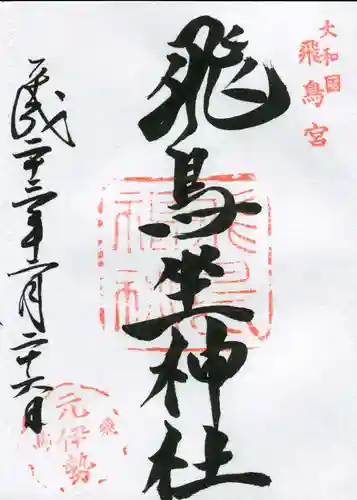 大和國
飛鳥宮
飛鳥坐神社
平成二十年月二十六日
元伊勢
飛鳥